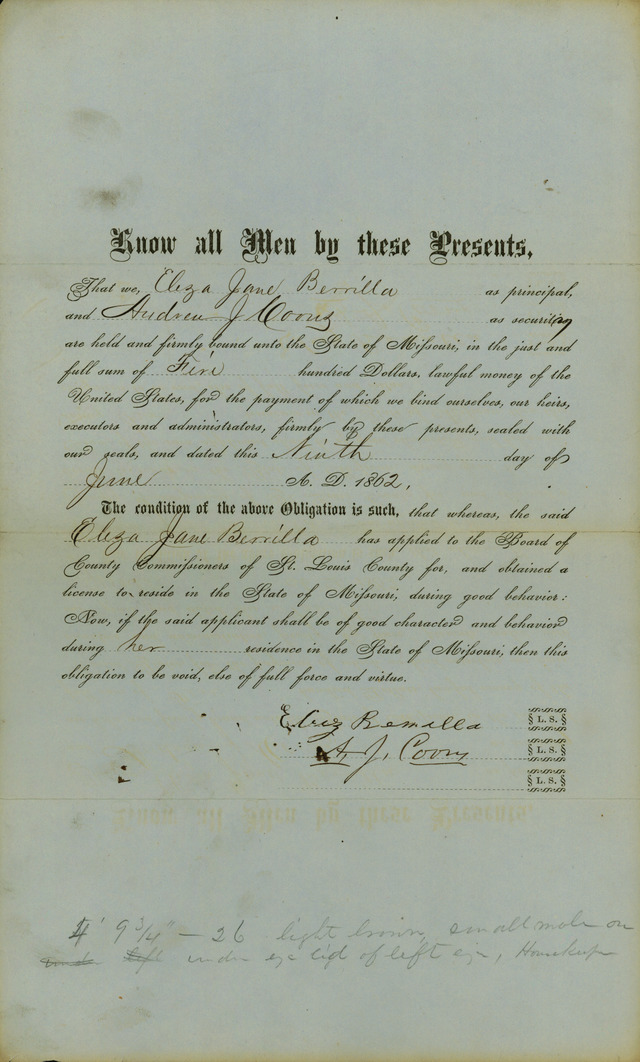 Know all Men by these Presents,
That we, Eliza Jane Berrilla as principal,
and Andrew J Coons as security
are held and firmly bound unto the State of Missouri, in the just and
full sum of Five hundred Dollars, lawful money of the
United States, for the payment of which we bind ourselves, our heirs,
executors and administrators, firmly by these presents, sealed with
our seals, and dated this Ninth day of
June A. D. 1862,
The condition of the above Obligation is such, that whereas, the said
Eliza Jane Berrilla has applied to the Board of
County Commissioners of St. Louis County for, and obtained a
license to reside in the State of Missouri, during good behavior:
Now, if the said applicant shall be of good character and behavior
during her residence in the State of Missouri, then this
obligation to be void, else of full force and virtue.
Eliz L. S.
A. J. Coons L. S.
L. S.
4' 9 3/4" — 26 light brown, small mole on
left under eye lid of left eye, Housekeeper